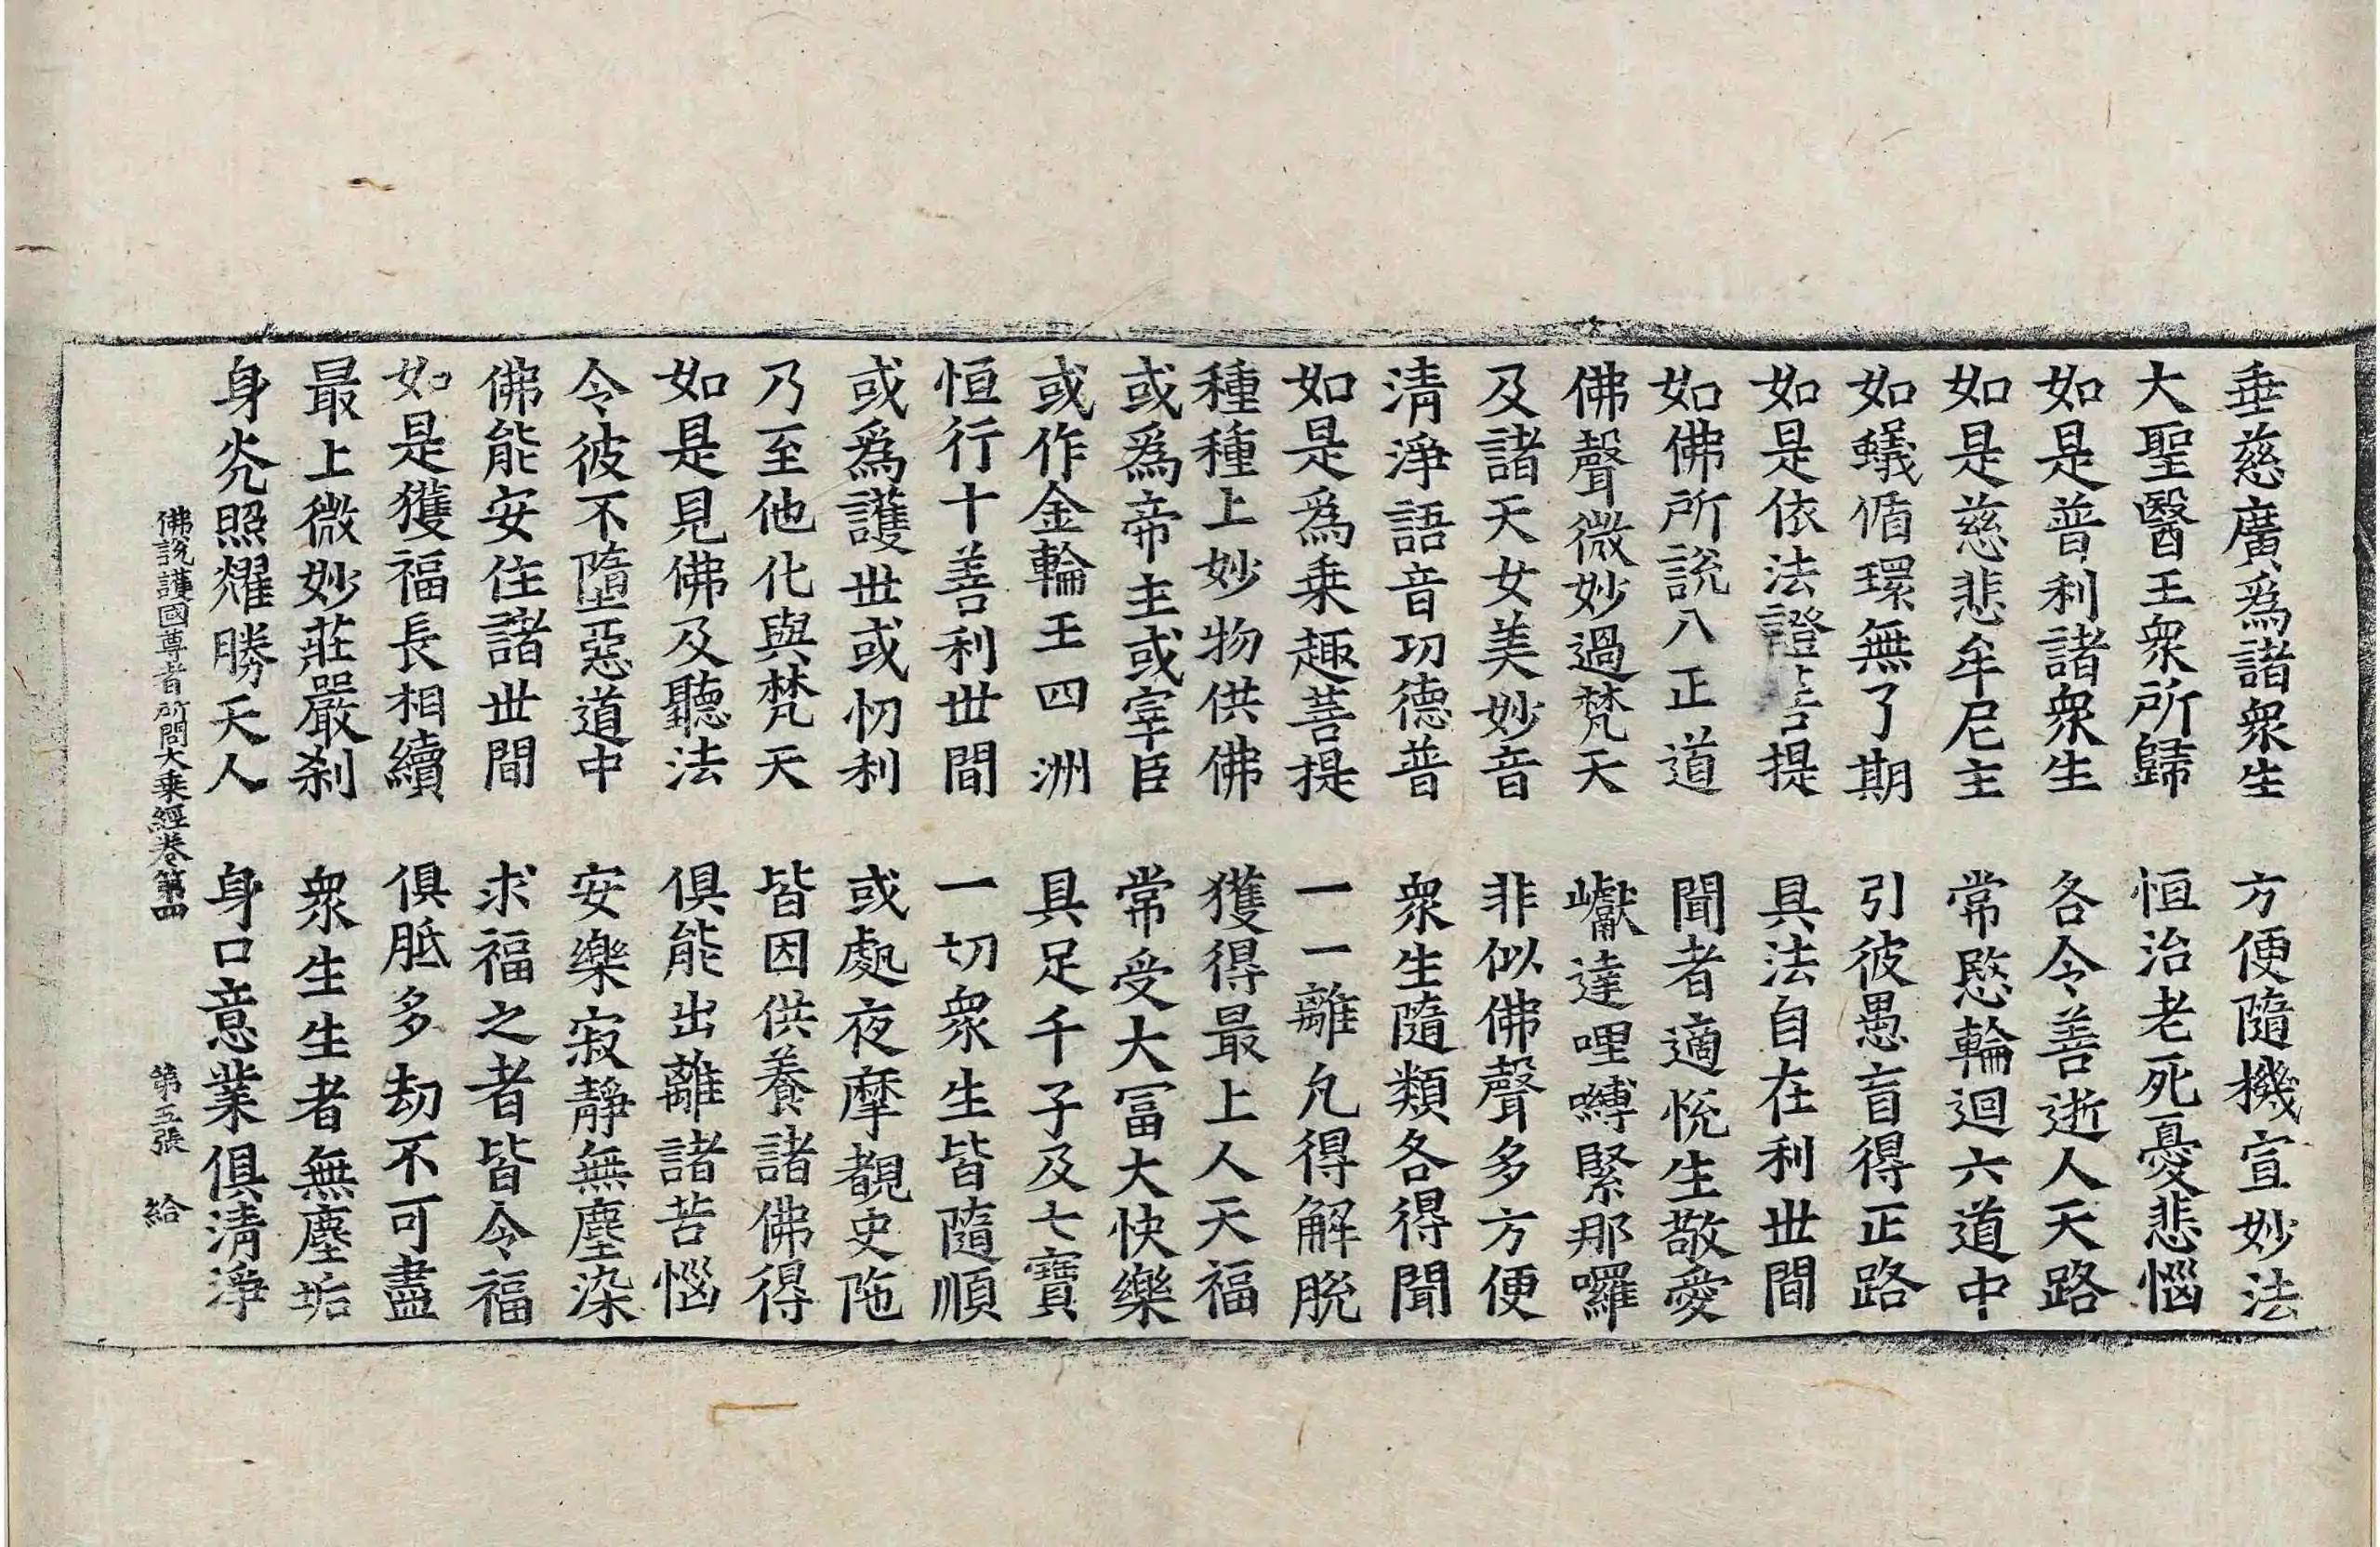 垂慈廣爲諸衆生　方便隨機宣妙法
大聖醫王衆所歸　恒治老死憂悲惱
如是普利諸衆生　各令善逝人天路
如是慈悲牟尼主　常愍輪迴六道中
如蟻循環無了期　引彼愚盲得正路
如是依法證菩提　具法自在利世間
如佛所說八正道　聞者適悅生敬愛
佛聲微妙過梵天　巘達哩嚩緊那囉
及諸天女美妙音　非似佛聲多方便
淸淨語音功德普　衆生隨類各得聞
如是爲乗趣菩提　一一離凡得解脫
種種上妙物供佛　獲得最上人天福
或爲帝主或宰臣　常受大冨大快樂
或作金輪王四洲　具足千子及七寶
恒行十善利世間　一切衆生皆隨順
或爲護世或忉利　或處夜摩覩史陁
乃至他化與梵天　皆因供養諸佛得
如是見佛及聽法　俱能出離諸苦惱
令彼不墮惡道中　安樂寂靜無塵染
佛能安住諸世間　求福之者皆令福
如是獲福長相續　俱胝多劫不可盡
最上微妙莊嚴刹　衆生生者無塵垢
身光照耀勝天人　身口意業俱淸淨
佛說護國尊者所問大乗經卷第四　第五張　給